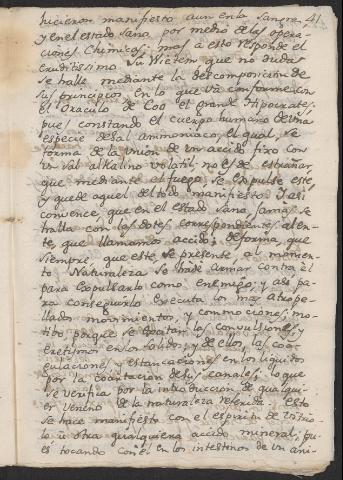 hicieron manifiesto aun en la sangre 41
y en el estado sano por medio de las opera
ciones Chimicos; mas à esto responde el
eruditissimo Vu Wietem que no duda
se halle mediante la descomposicion de
sus principios, en lo que và conforme con
el Oraculo de Coo el grande Hipocrates,
pues constando el cuerpo humano de una
especie de sal ammoniaco, el qual, se
forma de la union de un accido fixo con
un sal alkalino volatil, no es de estrañar
que mediante al fuego, se expulse este,
y quede aquel del todo manifiesto. Y asi
convence, que en el estado sano jamas se
halla con las dotes correspondientes al en
te, que llamamos accido; de forma, que
siempre, que este se presente, al momen
to Naturaleza se hade armar contra èl
para expulsarlo como enemigo; y asi pa
ra conseguirlo executa los mas atrope
llados movimientos, y commociones; mo
tibo, porque se excitan las convulsiones, y
eretismos en los solidos; y de ellos, las coa
gulaciones, y estancaciones en los liquidos
por la coartacion de sus canales: lo que
se verifica por la introduccion de qualqui
er veneno de la naturaleza referida: esto
se hace manifiesto con el espiritu de vitrio
lo ù otro qualquiera accido mineral; pu
es tocando con èl en los intestinos de un ani-